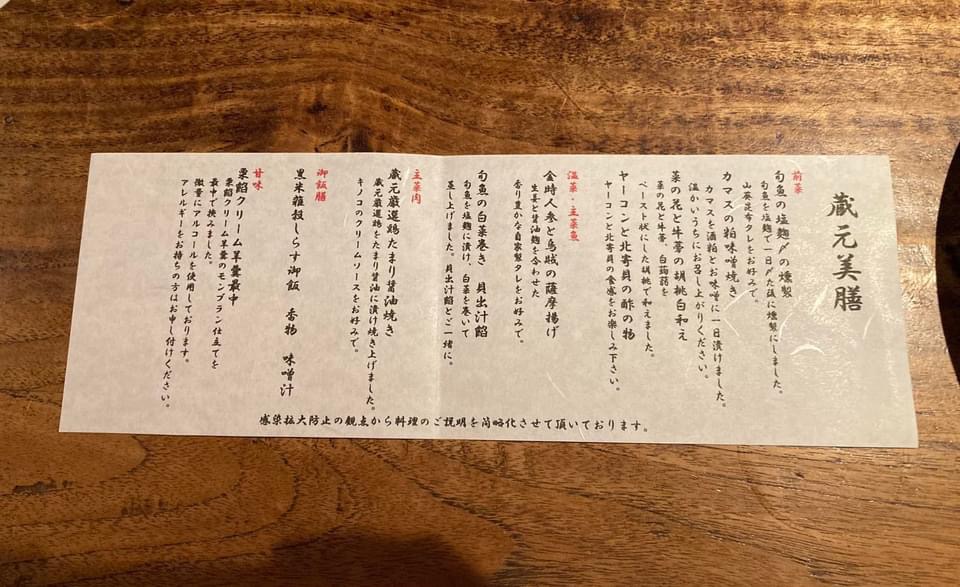 蔵元美膳
前菜
旬魚の塩麹〆の燻製
旬魚を塩麹で一日〆た後に燻製にしました。
山葵昆布タレをお好みで。
カマスの粕味噌焼き
カマスを酒粕とお味噌に一日漬けました。
温かいうちにお召し上がりください。
菜の花と牛蒡の胡桃白和え
菜の花と牛蒡、白蒟蒻を
ペースト状にした胡桃で和えました。
ヤーコンと北寄貝の酢の物
ヤーコンと北寄貝の食感をお楽しみ下さい。
温菜・主菜魚
金時人参と烏賊の薩摩揚げ
生姜と醤油麹を合わせた
香り豊かな自家製タレをお好みで。
旬魚の白菜巻き 貝出汁餡
旬魚を塩麹に漬け、白菜を巻いて
蒸し上げました。貝出汁餡とご一緒に。
主菜肉
蔵元厳選鶏たまり醤油焼き
蔵元厳選鶏をたまり醤油に漬け焼き上げました。
キノコのクリームソースをお好みで。
御飯膳
黒米雑穀しらす御飯 香物 味噌汁
甘味
栗餡クリーム羊羹最中
栗餡クリーム羊羹のモンブラン仕立てを
最中で挟みました。
微量にアルコールを使用しております。
アレルギーをお持ちの方はお申し付けください。
感染拡大防止の観点から料理のご説明を簡略化させて頂いております。